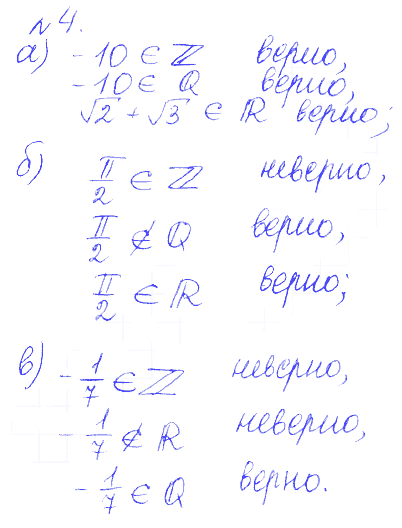 №4.
а) -10 ∈ ℤ верно,
-10 ∈ ℚ верно,
√2 + √3 ∈ ℝ верно;
б) π/2 ∈ ℤ неверно,
π/2 ∉ ℚ верно,
π/2 ∈ ℝ верно;
в) -1/7 ∈ ℤ неверно,
-1/7 ∉ ℝ неверно,
-1/7 ∈ ℚ верно.